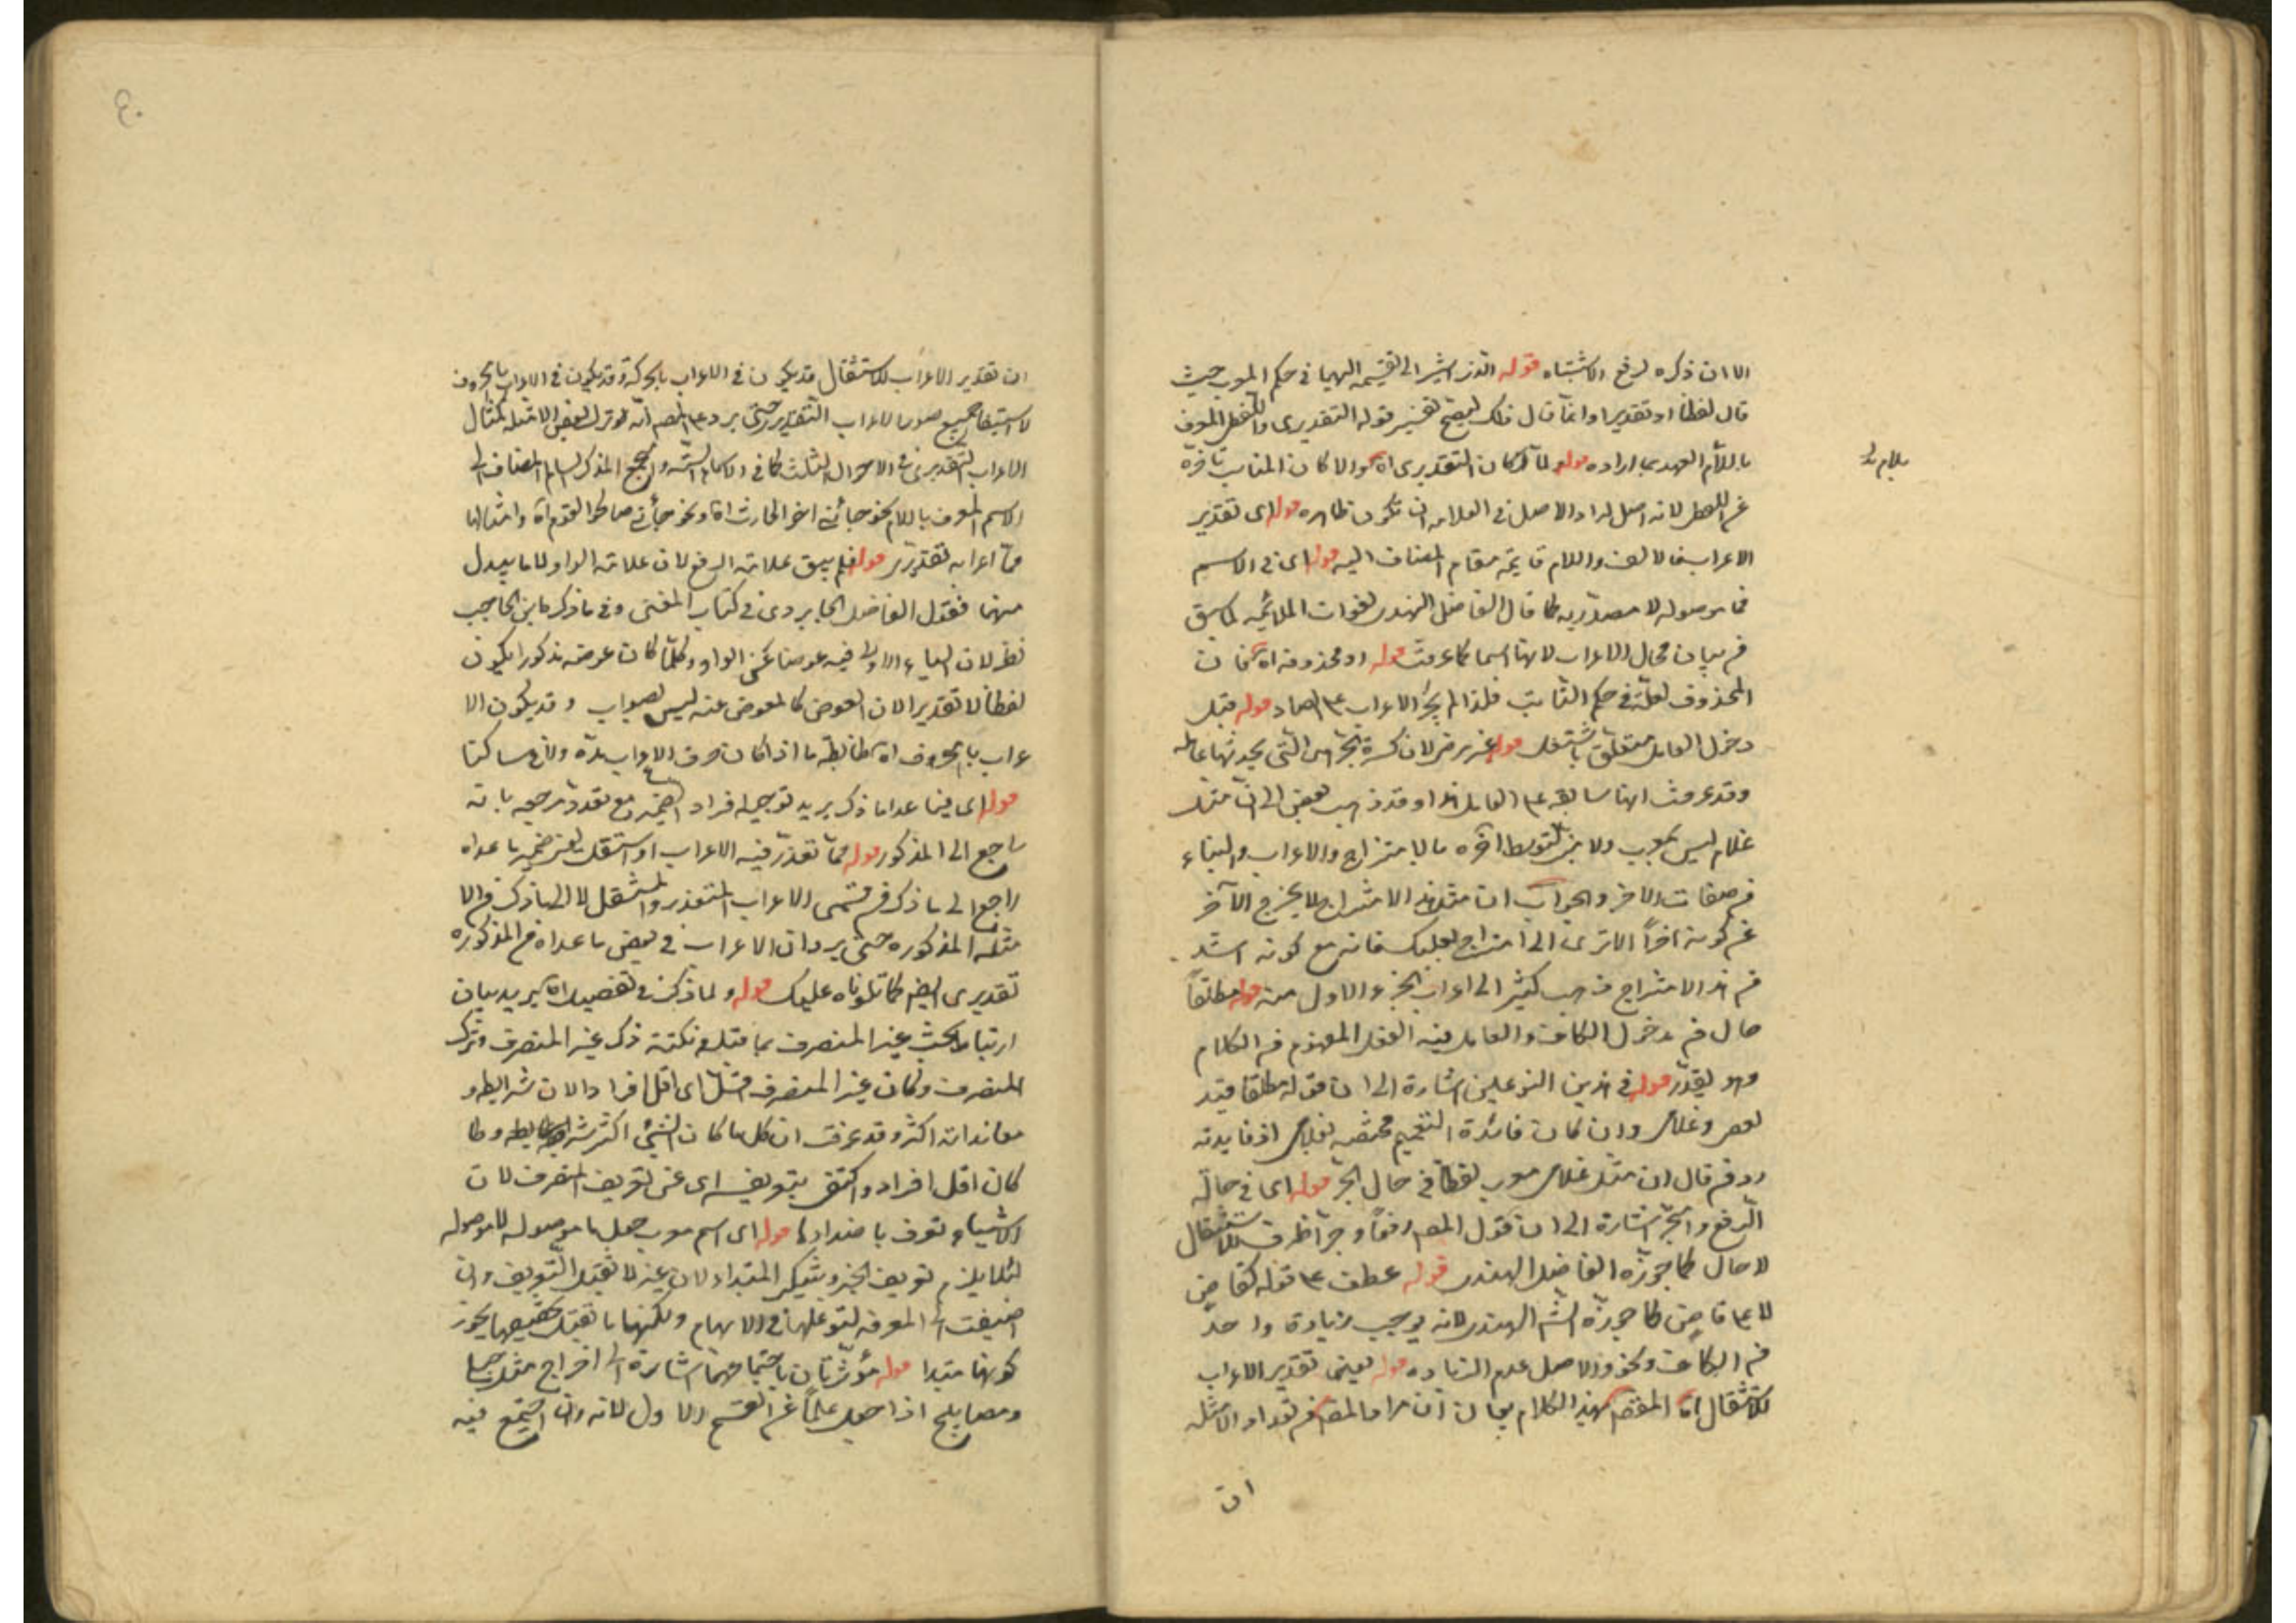 الا ان ذكره لرفع الاشتباه قوله الذى اشير الى تقسيمه اليهما فى حكم المعرب حيث
قال لفظا او تقديرا وانما قال ذلك ليصح تفسير قوله التقديرى واللفظى المعرف
باللام العهد بما اراده قوله ولما كان التقديرى اه والا كان المناسب تاخره
عن اللفظى لانه اصل له اذ الاصل فى العلامة ان تكون ظاهره قوله اى تقدير
الاعراب فالالف واللام قايمة مقام المضاف اليه قوله اى فى الاسم
فما موصوله لا مصدريه كما قال الفاضل الهندى لفوات الملائمه لما سبق
فى بيان محال الاعراب لانها اسما كما عرفت قوله او محذوفه اه فان
المحذوف لعلة فى حكم الثابت فلذا لم يجر الاعراب على الصاد قوله قبل
دخول العامل متعلق باشتغل قوله غير مرضى لان كسرة الجر هى التى يحدثها عامله
وقد عرفت انها سابقه على العامل هذا وقد ذهب بعض الى ان مثل
غلامى ليس بمعرب ولا مبنى لتوسط اخره بالامتزاج والاعراب والبناء
من صفات الاخر والجواب ان مثل هذا الامتزاج لا يخرج الآخر
عن كونه اخرا الا ترى الى امتزاج بعلبك فانه مع كونه اشد
من هذا الامتزاج ذهب كثير الى اعراب الجزء الاول منه قوله مطلقا
حال من مدخول الكاف والعامل فيه الفعل المفهوم من الكلام
وهو يقدر قوله فى هذين النوعين اشارة الى ان قوله مطلقا قيد
لعصى وغلامى وان كان فائدة التعميم مختصه بغلامى اذ فايدته
رد من قال ان مثل غلامى معرب لفظا فى حال الجر قوله اى فى حالة
الرفع والجر اشارة الى ان قول المص رفعا وجرا ظرف للاستثقال
لا حال كما جوزه الفاضل الهندى قوله عطف على قوله كقاض
لا على قاض كما جوزه الشه الهندى لانه يوجب زيادة واحد
من الكاف ونحو والاصل عدم الزياده قوله يعنى تقدير الاعراب
للاستثقال اه المقصد بهذا الكلام بيان ان مراد المص من تعداد الامثله
ان
ان تقدير الاعراب للاستثقال قد يكون فى الاعراب بالحركة وقد يكون فى الاعراب بالحروف
لا استيفاء جميع صور الاعراب التقديرى حتى يرد على المص انه لو ترك بعض الامثله كمثال
الاعراب التقديرى فى الاحوال الثلث كما فى الاسماء الستة والجمع المذكر السالم المضاف الى
الاسم المعرف باللام نحو جائنى اخو الحارث اه ونحو جائنى صالحو القوم اه وامثالها
مما اعرابه تقديرى قوله فلم يبق علامة الرفع لان علامة الواو لا ما يبدل
منها فقول الفاضل الجاربردى فى كتاب المغنى وفى ما ذكره ابن الحاجب
نظر لان الياء الاولى فيه عوضا عن الواو وكلما كان عوضه مذكورا يكون
لفظا لا تقديرا لان العوض كالمعوض عنه ليس بصواب وقد يكون الا
عراب بالحروف اه ضابطه ما اذا كان حرف الاعراب مدة ولاقى ساكنا
قوله اى فيما عدا ما ذكر يريد توجيه افراد الضمير مع تعدد مرجعه بانه
راجع الى المذكور قوله مما تعذر فيه الاعراب او استثقل يعنى ضمير ما عداه
راجع الى ما ذكر من قسمى الاعراب المتعذر والمستثقل لا الى ما ذكر من الا
مثله المذكوره حتى يرد ان الاعراب فى بعض ما عداه من المذكوره
تقديرى ايضا كما تلوناه عليك قوله ولما ذكر فى تفصيل اه يريد بيان
ارتباط بحث غير المنصرف بما قبله ونكتة ذكر غير المنصرف وترك
المنصرف وكان غير المنصرف اقل اى اقل افرادا لان شرايطه و
معانداته اكثر وقد عرفت ان كل ما كان الشئ اكثر شرايطه وطا
كان اقل افراد واكتفى بتعريفه اى عن تعريف المنصرف لان
الاشياء تعرف باضدادها قوله اى اسم معرب جعل ما موصوله لا موصوله
لئلا يلزم تعريف الخبر وتنكير المبتداء لان غير لا تقبل التعريف وان
اضيفت الى المعرفه لتوغلها فى الابهام ولكنها ما تقبل تخصيصها يجوز
كونها مبتدا قوله مؤثرتان باجتماعهما اشارة الى اخراج مثل حبلى
ومصابيح اذا جعل علما عن القسم الاول لانه وان اجتمع فيه